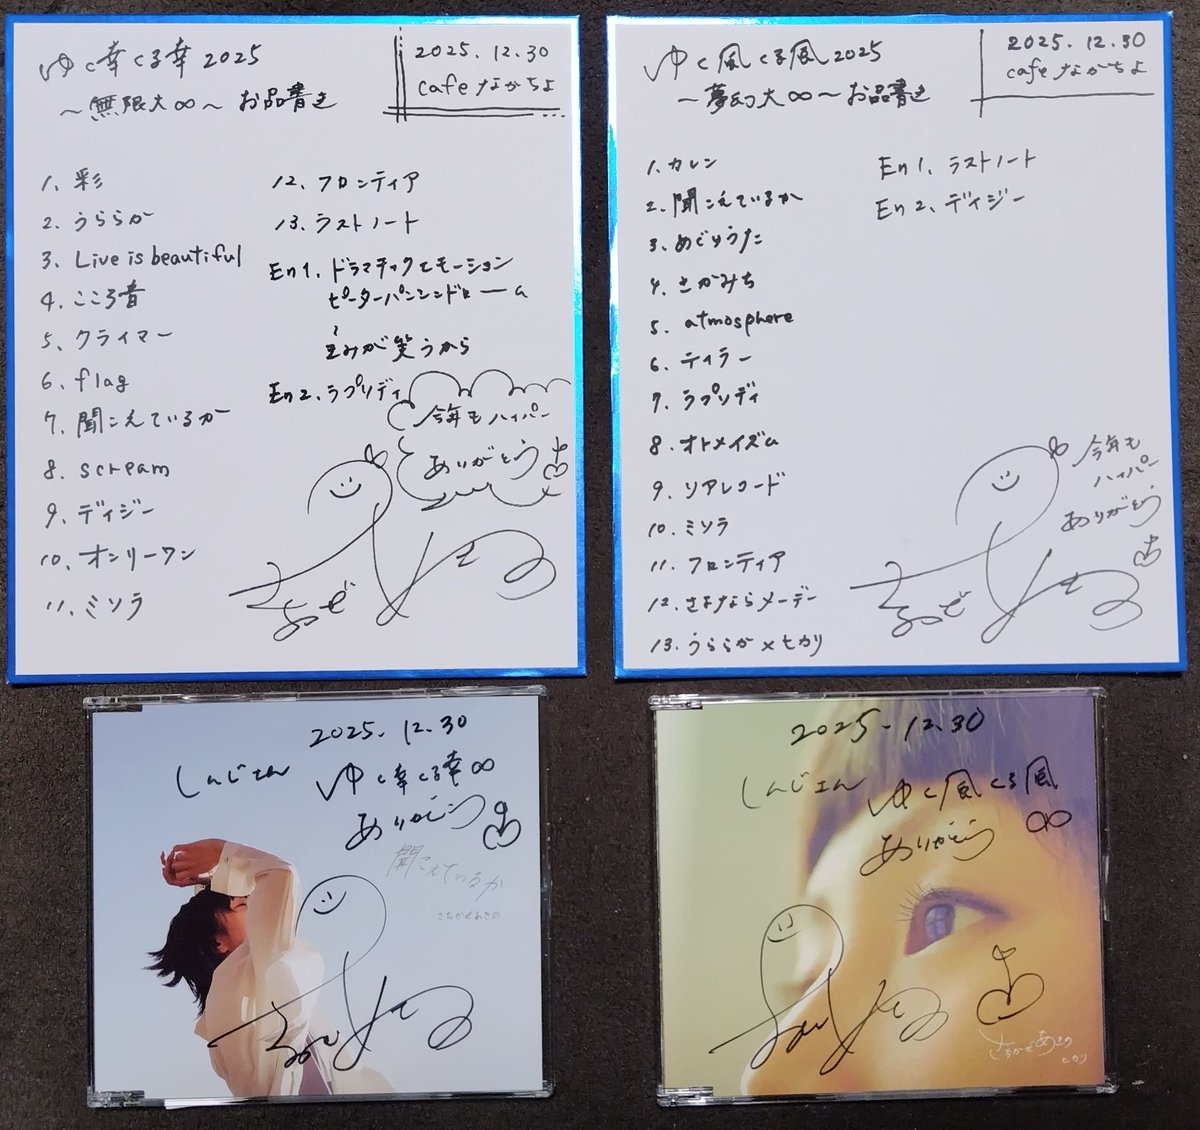 ゆく幸くる幸2025
～無限大∞～お品書き
2025.12.30
cafeなかちよ
1、彩
2、うららか
3、Live is beautiful
4、こころ音
5、クライマー
6、flag
7、聞こえているか
8、scream
9、デイジー
10、オンリーワン
11、ミソラ
12、フロンティア
13、ラストノート
En1、ドラマチックエモーション
ピーターパンシンドローム
きみが笑うから
En2、ラプソディ
今年もハイパー
ありがとう
ゆく風くる風2025
～夢幻大∞～お品書き
2025.12.30
cafeなかちよ
1、カレン
2、聞こえているか
3、めぐりうた
4、さかみち
5、atmosphere
6、テイラー
7、ラプソディ
8、オトメイズム
9、リアレコード
10、ミソラ
11、フロンティア
12、さよならメーデー
13、うららか×ヒカリ
En1、ラストノート
En2、デイジー
今年も
ハイパー
ありがとう
2025.12.30
しんじさん
ゆく幸くる幸∞
ありがとう
聞こえているか
さちかぜあきの
2025.12.30
しんじさん
ゆく風くる風
∞
ありがとう
さちかぜあきの
ヒカリ